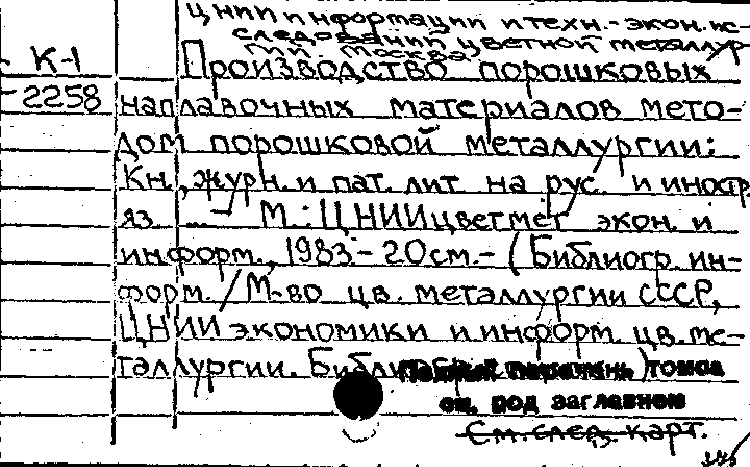 ЦНИИ информации и техн.-экон. ис-
следований цветной металлур
гии. Москва
К-1 Производство порошковых
2258 наплавочных материалов мето-
дом порошковой металлургии:
Кн., журн. и пат. лит на рус. и иностр
яз. — М.: ЦНИИцветмет экон. и
информ., 1983.- 20см.- (Библиогр. ин-
форм. / М-во цв. металлургии СССР,
ЦНИИ экономики и информ. цв. ме-
таллургии. томов
см. под заглавием
См. след. карт.